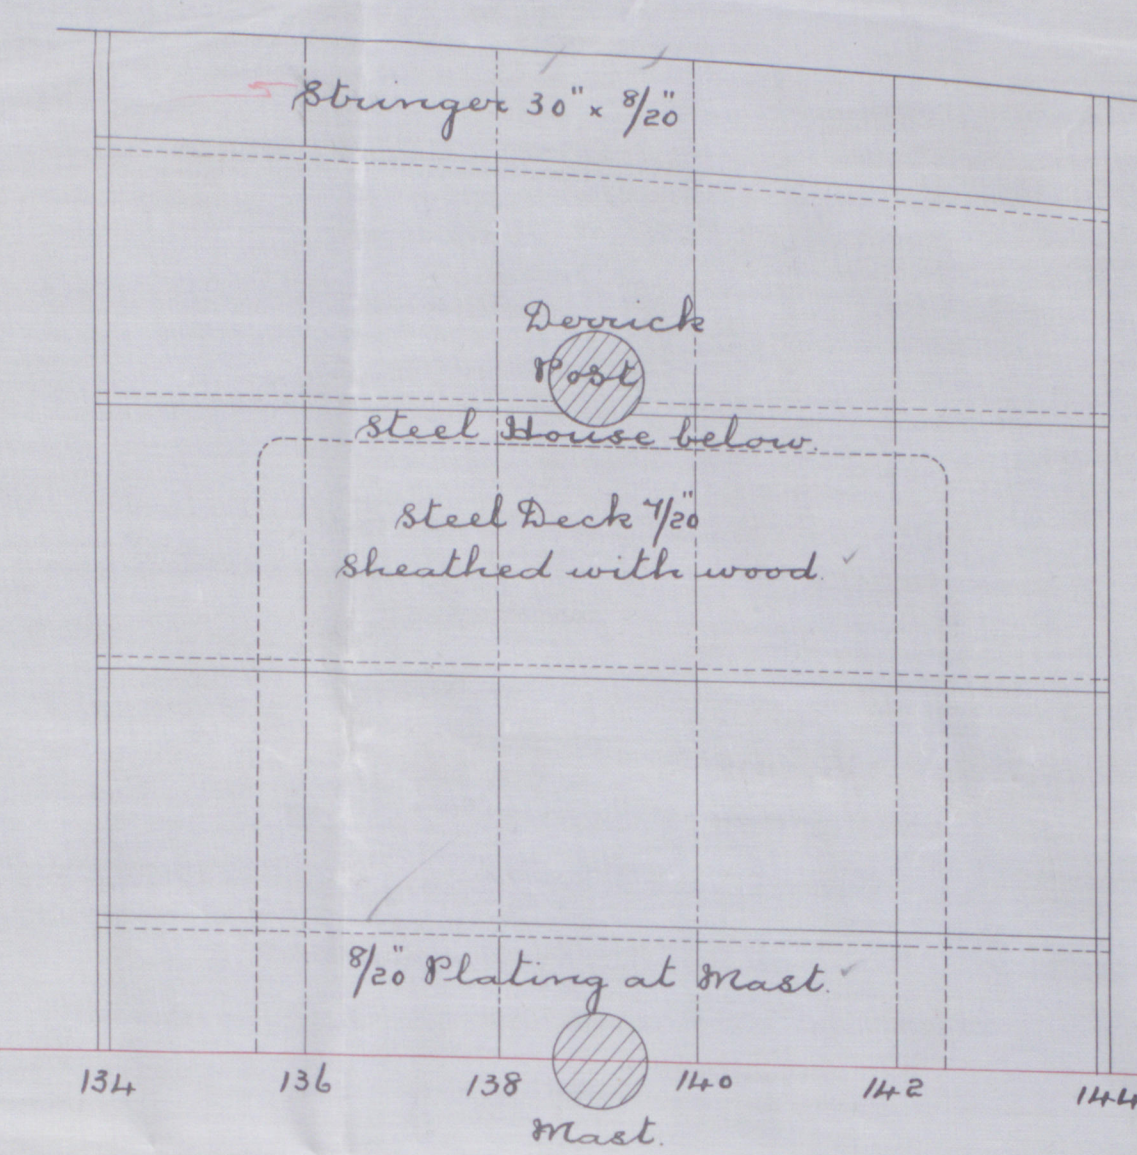 Stringer 30" x 8/20"
Derrick
Post
Steel House below.
Steel Deck 7/20"
sheathed with wood.
8/20" Plating at Mast.
134 136 138 140 142 144
Mast.